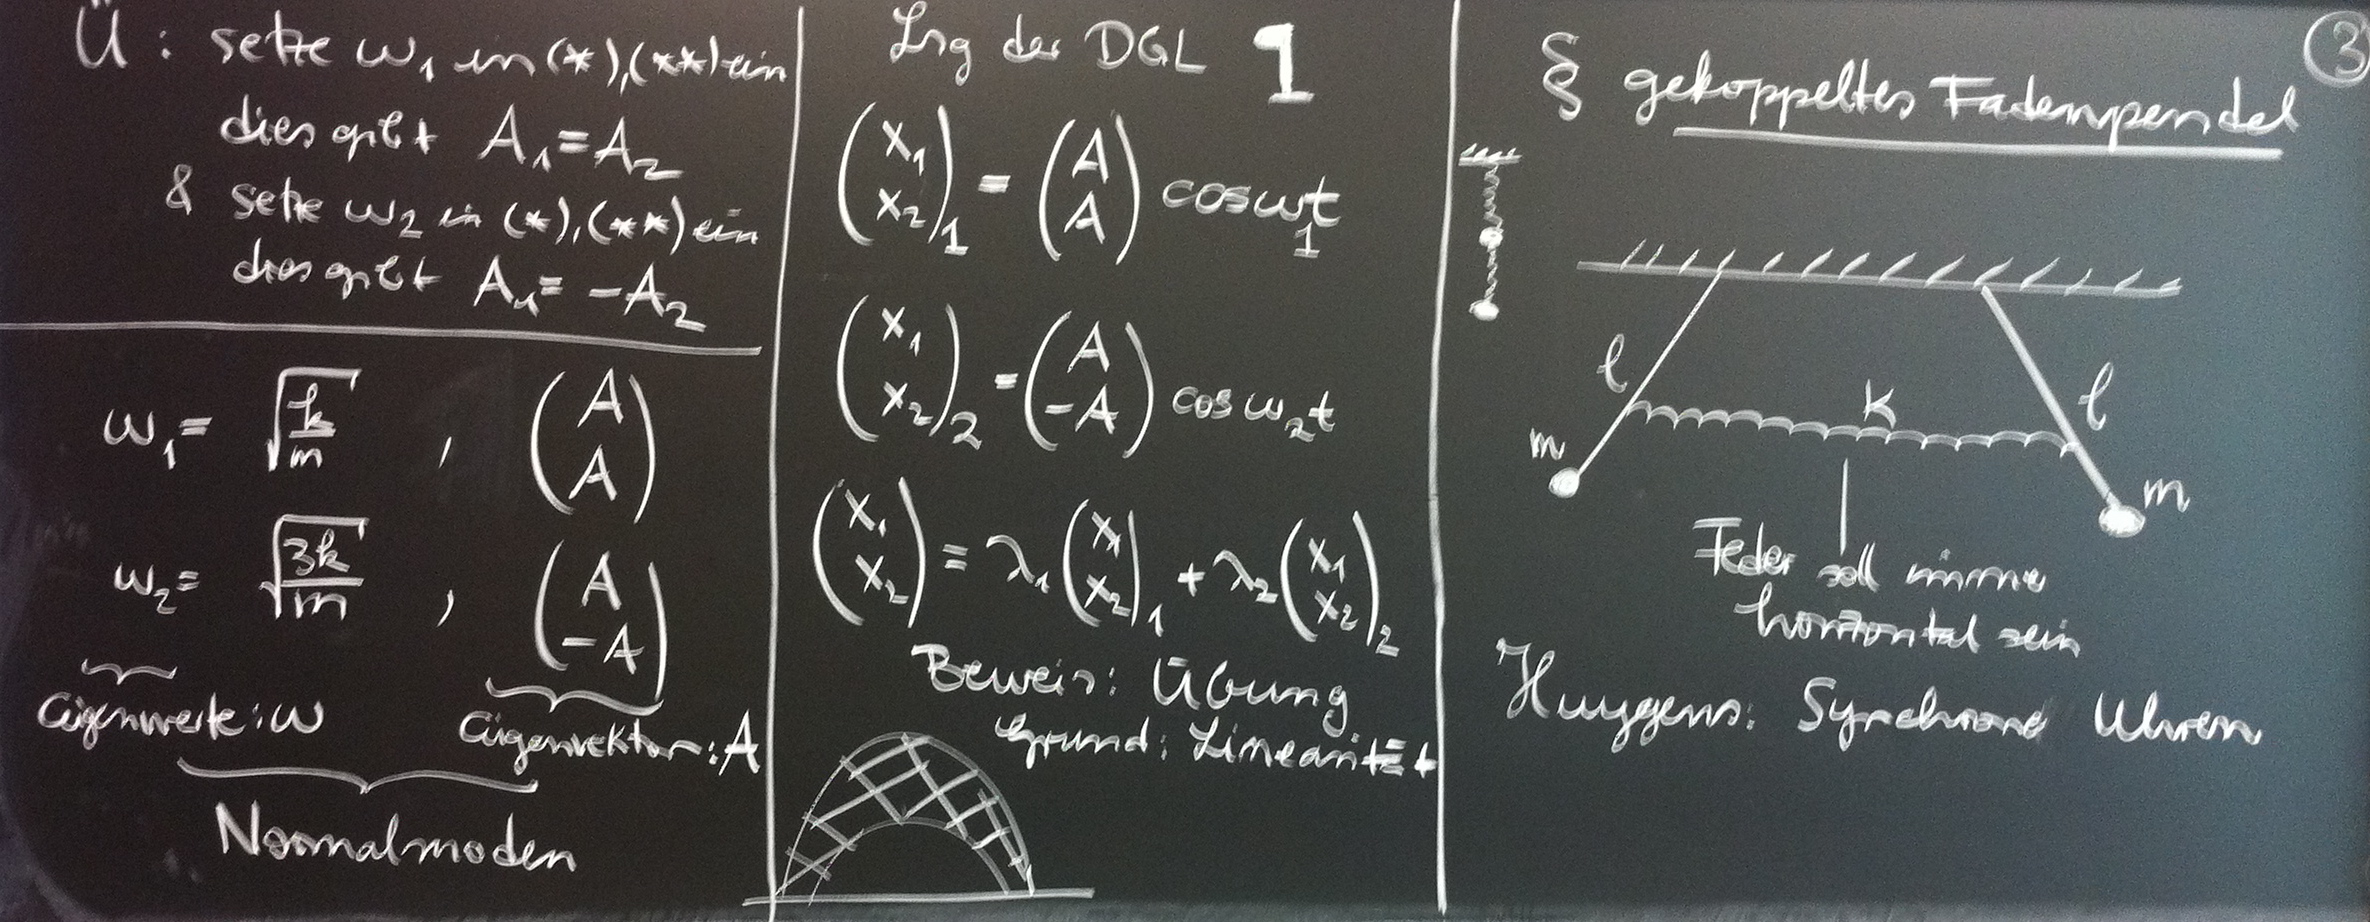 Ü: setze ω₁ in (*),(**) ein
dies gibt A₁ = A₂
& setze ω₂ in (*),(**) ein
dies gibt A₁ = -A₂
ω₁ = √(k/m) , (A A)
ω₂ = √(3k/m) , (A -A)
Eigenwerte: ω
Eigenvektor: A
Normalmoden
Lsg der DGL 1
(x₁ x₂)₁ = (A A) cos ω₁t
(x₁ x₂)₂ = (A -A) cos ω₂t
(x₁ x₂) = λ₁ (x₁ x₂)₁ + λ₂ (x₁ x₂)₂
Beweis: Übung
Grund: Linearität
③
§ gekoppeltes Fadenpendel
l
l
k
m
m
Feder soll immer
horizontal sein
Huygens: Synchrone Uhren